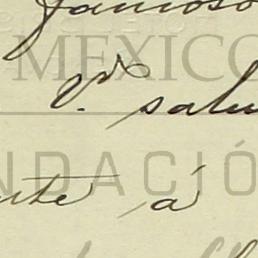 famoso
MEXICO
V. salu
NDACIÓ
nte á